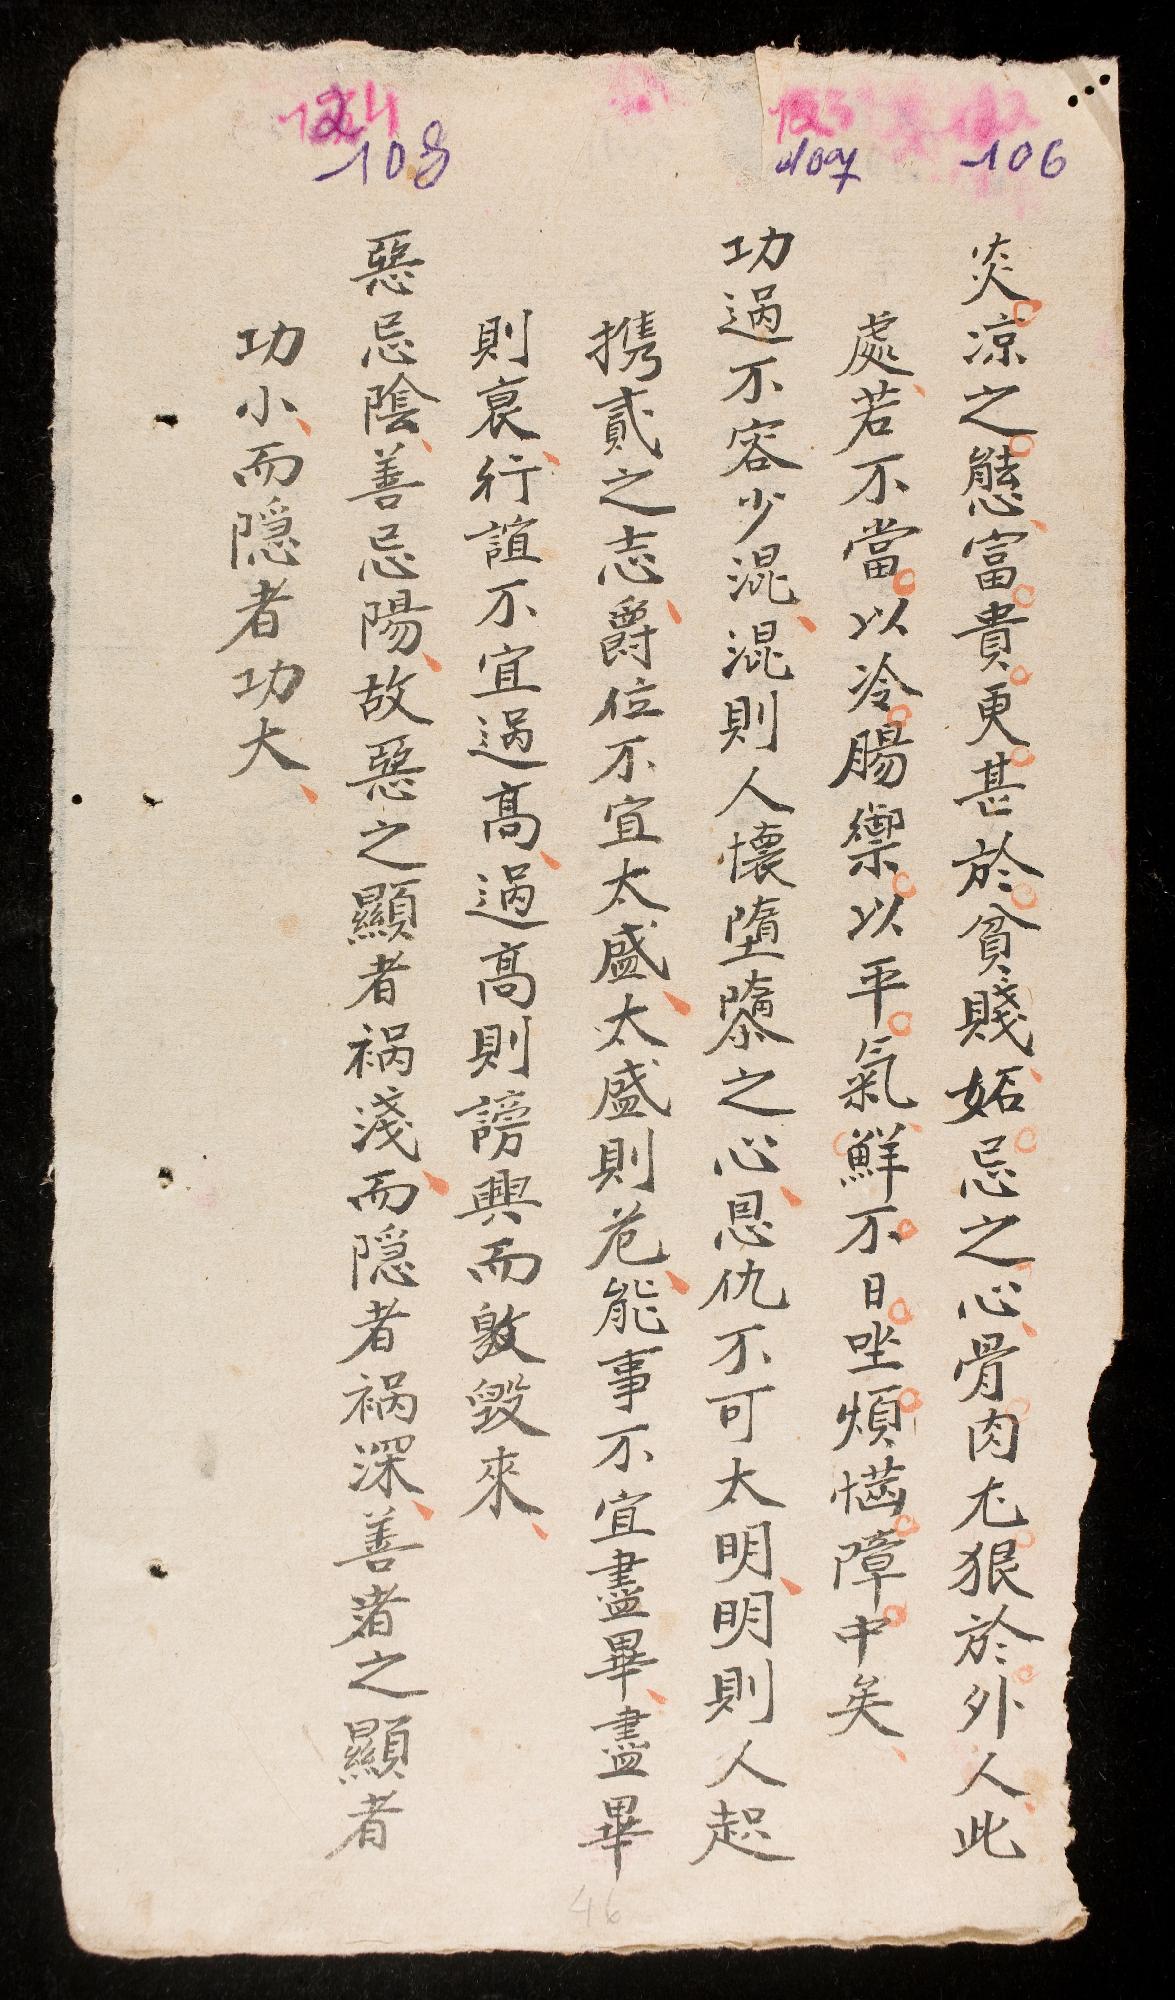 106
炎凉之態富貴更甚於貧賤妬忌之心骨肉尤狠於外人此
處若不當以冷腸禦以平氣鮮不日坐煩惱障中矣
107
功過不容少混混則人懷墮隳之心恩仇不可太明明則人起
携貳之志爵位不宜太盛太盛則危能事不宜盡畢盡畢
則衰行誼不宜過高過高則謗興而敫毀來
124
108
惡忌陰善忌陽故惡之顯者禍淺而隱者禍深善者之顯者
功小而隱者功大
46